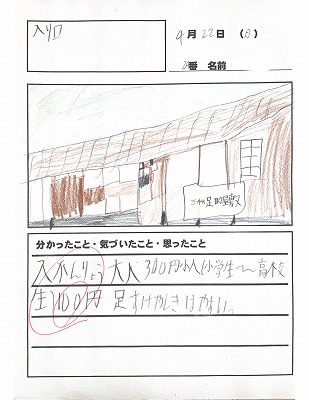 入り口
4月22日(月)
番 名前
三州足助屋敷
分かったこと・気づいたこと・思ったこと
入るんりょう 大人300円小人(小学生〜高校
生)100円 足すけやしきはやすい。